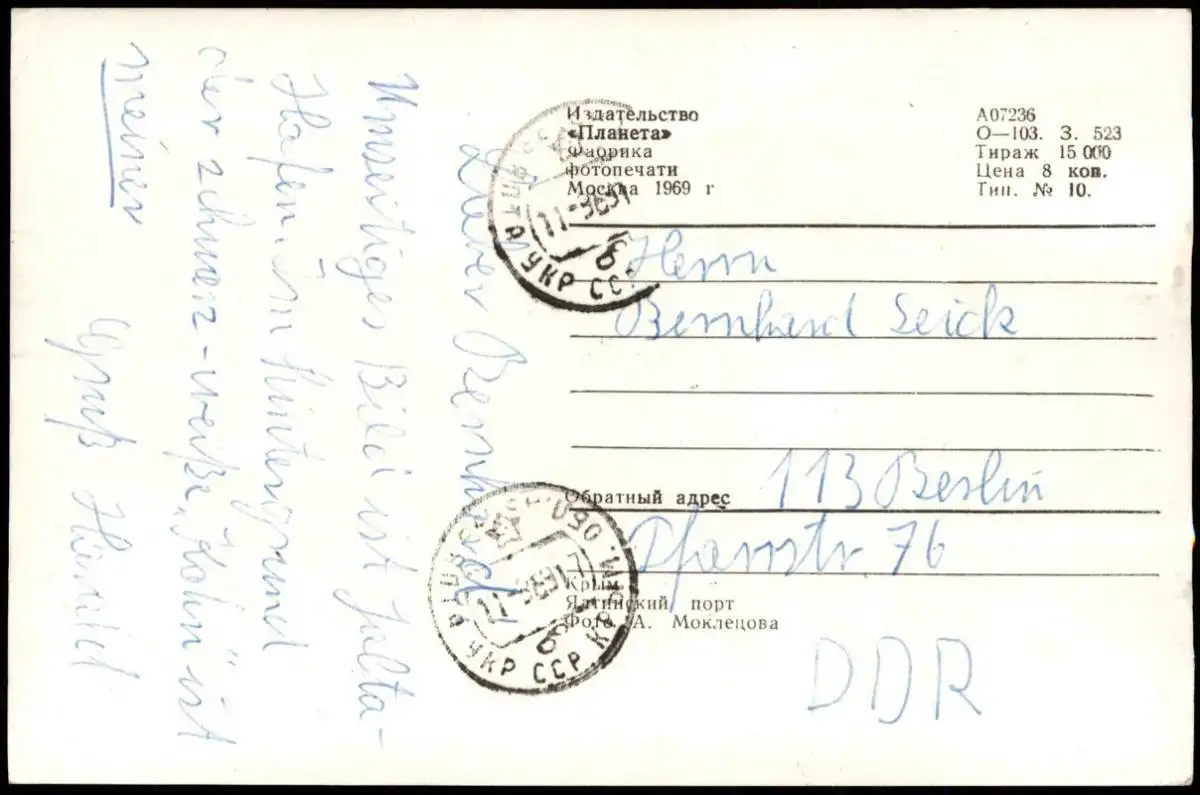 Lieber Bernhard
Umseitiges Bild ist Jalta-
Hafen im Hintergrund
der schwarz-weiße „Kahn“ ist
meiner
Gruß Harald
Издательство
«Планета»
Фабрика
фотопечати
Москва 1969 г
А07236
О—103. З. 523
Тираж 15 000
Цена 8 коп.
Тип. № 10.
Herrn
Bernhard Seick
113 Berlin
Обратный адрес
Pfarrstr 76
Крым
Ялтинский порт
Фото А. Моклецова
DDR
ЯЛТА УКР ССР
б
КРЫМ. ОБЛ.
УКР ССР
б